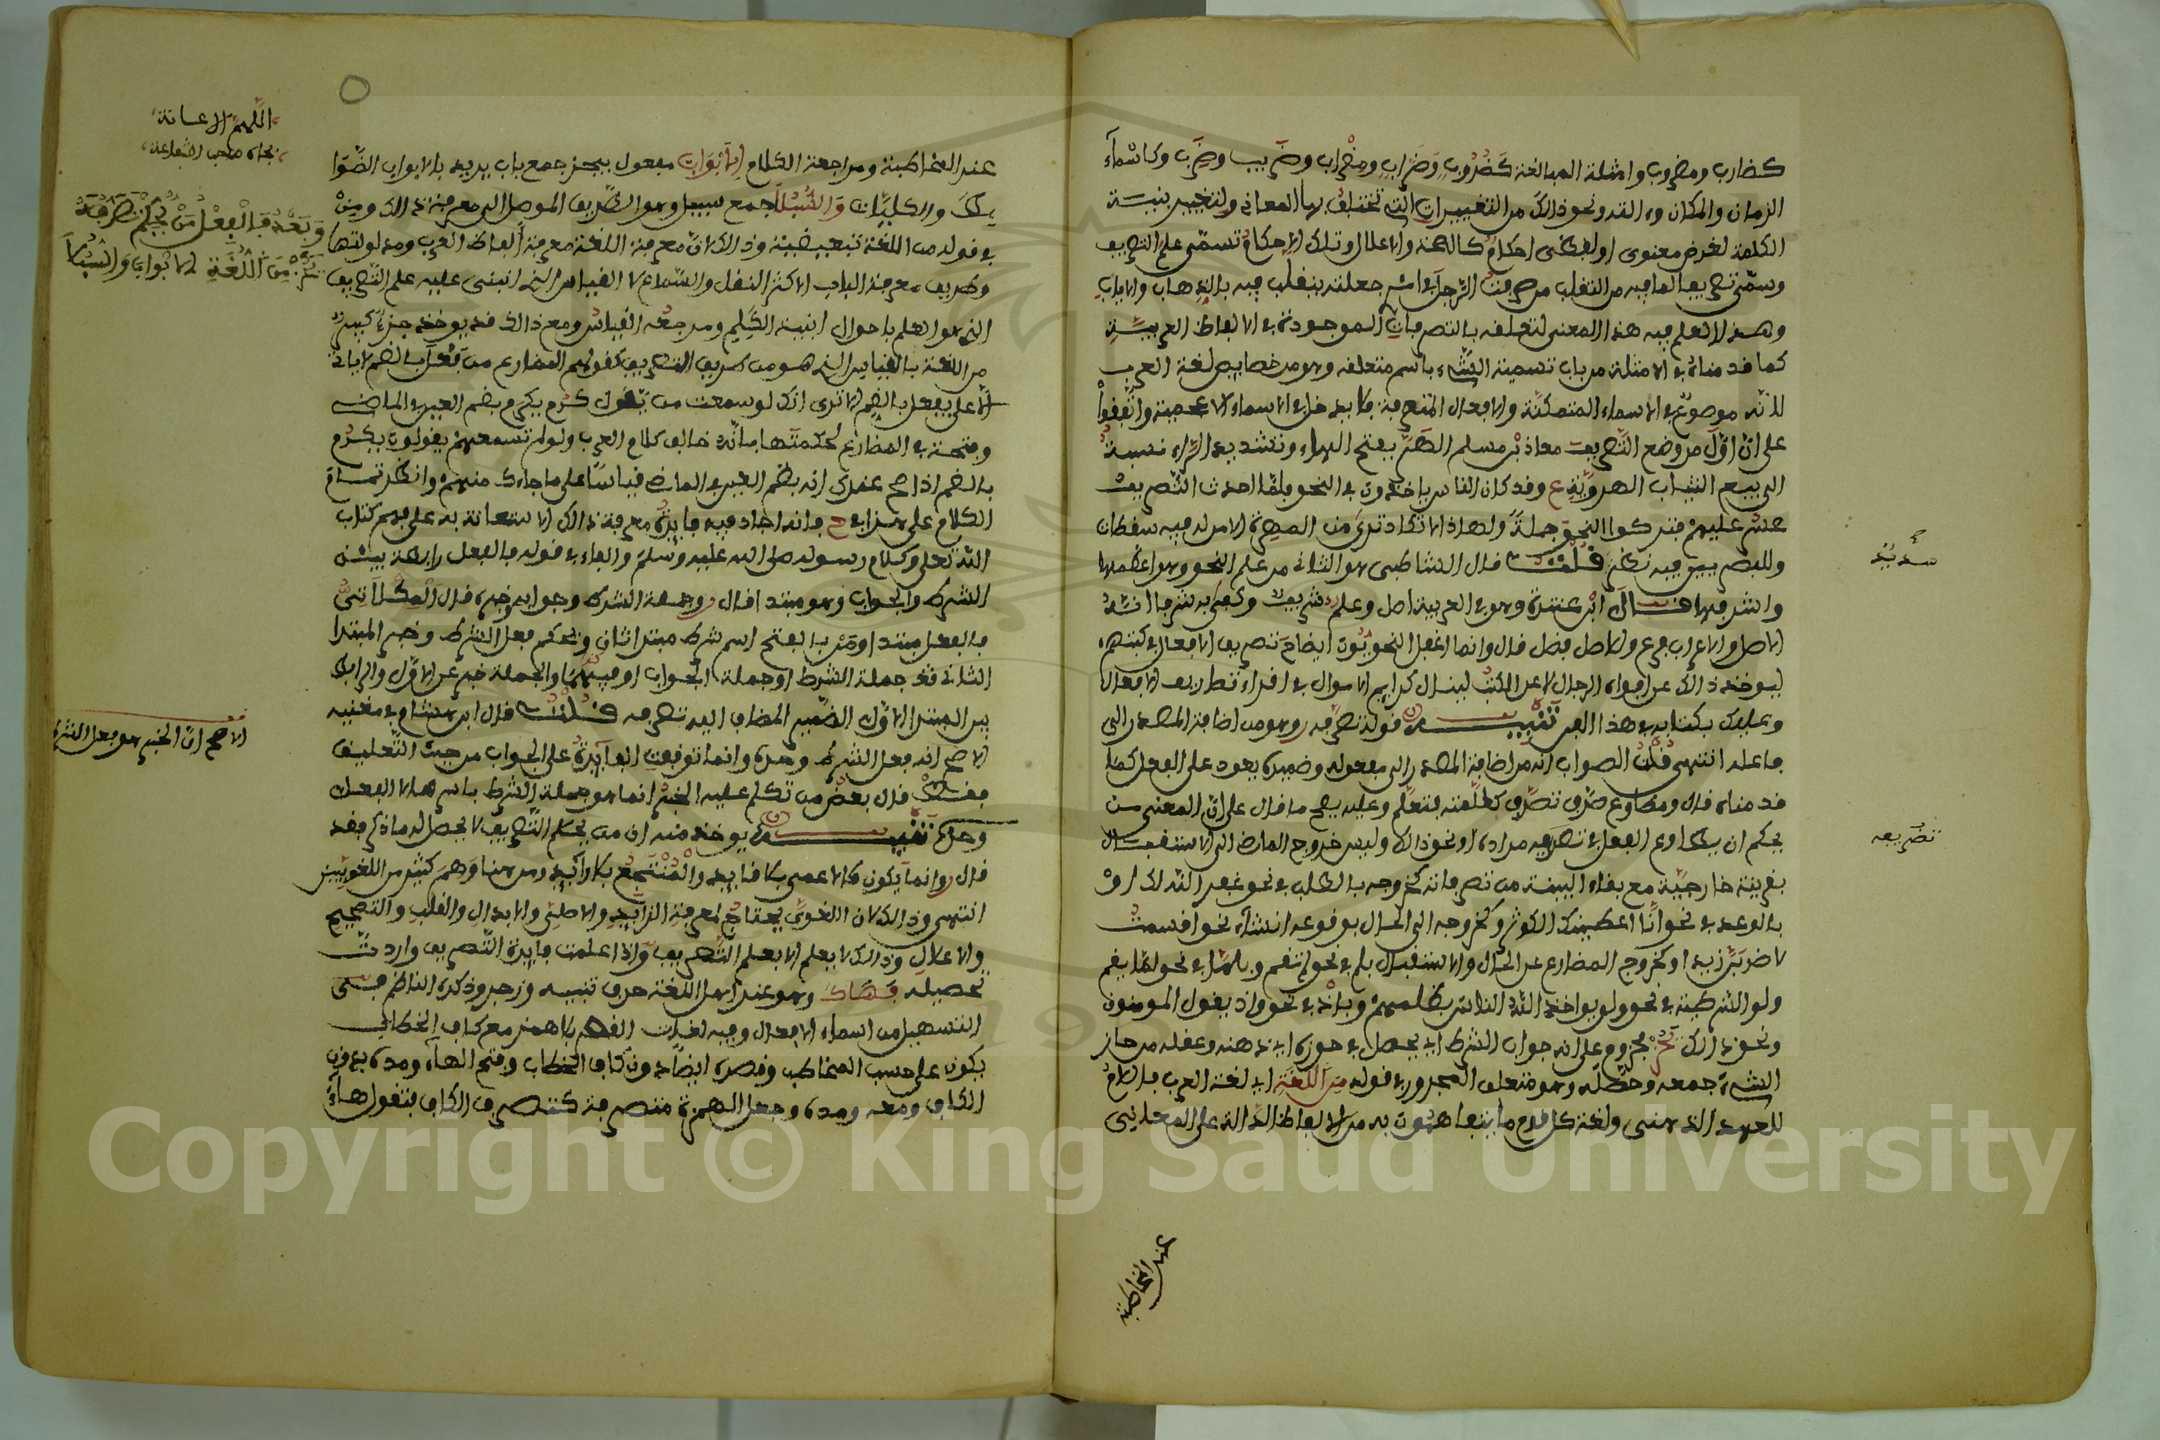 كضارب ومضروب وامثلة المبالغة كَضُرُوبٍ وَضَرَّابٍ ومِضْرَابٍ وضَرِيبٍ وضَرِبٍ وكاسْمَآءِ
الزمان والمكان والالة ونحو ذالك من التغييرات التى تختلف بها المعانى ولتغيير بنية
الكلمة لغرض معنوى او لفظى احكام كالصحة والاعلال وتلك الاحكام تسمى علم التصريف
وسمى تصريفا لما فيه من التقلب من صرفت الرجل فى امره جعلته يتقلب فيه بالذهاب والاياب
وهذا العلم فيه هذا المعنى لتعلقه بالتصرفات الموجودة فى الالفاظ العربية
كما قدمناه فى الامثلة من باب تسمية الشىء باسم متعلقه وهو من خصايص لغة العرب
لانه موضوع فى الاسماء المتمكنة والافعال المتصرفة فلا يدخل فى الاسماء الاعجمية واتفقوا
على ان اول من وضع التصريف معاذ بن مسلم الهَرَّا بفتح الهاء وتشديد الراء نسبة
الى بيع الثياب الهروية ع وقد كان الناس ياخذون فى النحو فلما احدث التصريف
عسر عليهم فتركوا النحو جملة ولهاذا لا تكاد ترى من المهرة الا من له فيه سقطات
وللبصريين فيه نظر قلت قال الشاطبى هو الثانى من علم النحو وهو اعظمها
واشرفها قال ابن عنترة وهو فى العربية اصل وعلم شريف وكفى به شرفا انه
الاصل والاعراب فرع والاصل افضل قال وانما اغفل النحويون ايضاح تصريف الافعال فى كتبهم
ليوخذ ذالك عن افواه الرجال لا عن الكتب
وعليك بكتابه فى هذا الفن تنبيه قوله تصرفه وهو من اضافة المصدر الى
فاعله انتهى قلت الصواب انه من اضافة المصدر الى مفعوله وضميره يعود على الفعل كما
قدمناه قال ومطاوع صرف تصرف كعلمته فتعلم وعليه يصح ما قال على ان المعنى من
يحكم ان يطاوع الفعل فى تصريفه مراده او نحو ذالك وليس خروج الماضى الى الاستقبال
بقرينة خارجية مع بقاء البنية من تصرفاته كخروجه بالطلب فى نحو غفر الله لك او
بالوعد فى نحو انا اعطينك الكوثر وكخروجه الى الحال بوقوعه انشاء نحو اقسمت
لاضربن زيدا وكخروج المضارع عن الحال والاستقبال بلم فى نحو لم تقم وبلما فى نحو لما يقم
ولو الشرطية فى نحو ولو يواخذ الله الناس بظلمهم وباذ فى نحو واذ يقول المومنون
ونحو ذالك يَحُزْ مجزوم على انه جواب الشرط اى يحصل فى حوزه اى ذهنه وعقله من حاز
الشىء جمعه وحصله وهو متعلق المجرور فى قوله مِنَ اللُّغَةِ اى لغة العرب فاللام
للعهد الذهنى ولغة كل قوم ما يتفاهمون به من الالفاظ الدالة على المعانى
عند المخاطبة
تصريفه
عند المخاطبة ومراجعة الكلام اِلاَبْوَابَ مفعول يحز جمع باب يريد بالابواب الضوا
بط والكليات وَالسُّبُلاَ جمع سبيل وهو الطريق الموصل الى معرفة ذالك ومن
فى قوله من اللغة تبعيضية وذالك لان معرفة اللغة معرفة الفاظ العرب ومدلولتها
وطريق معرفة الباب الاكثر النقل والسماع لا القياس الذى انبنى عليه علم التصريف
الذى هو العلم باحوال ابنية الكلم ومرجعه القياس ومع ذالك قد يوخذ جزء كبير
من اللغة بالقياس الذى هو من طريق التصريف كقولهم المضارع من فعُل بالضم لا ياتى
الا على يفعُل بالضم الا ترى انك لو سمعت من يقول كرُم يكرَم بضم العين فى الماضى
وفتحه فى المضارع لحكمت بانه خالف كلام العرب ولو لم تسمعهم يقولون يكرُم
بالضم اذا صح عندك انه بضم العين فى الماضى قياسا على ما جاءك منهم وانظر تمام
الكلام على هذا فى ح فانه اجاد فيه فايدة معرفة ذالك الاستعانة به على فهم كتاب
الله تعلى وكلام رسوله صلى الله عليه وسلم والفاء فى قوله فالفعل رابطة بين
الشرط والجواب وهو مبتدا قال وجملة الشرط وجوابه خبره قال المِكْلاَتِىُّ
فالفعل مبتدا ومَن بالفتح اسم شرط مبتدا ثان ويحكم فعل الشرط وخبر المبتدا
الثانى قد جملة الشرط او جملة الجواب او هما والجملة خبر عن الاول والرابط
بين المبتدا الاول الضمير المضاف اليه تصرفه قلت قال ابن هشام فى مغنيه
الاصح انه فعل الشرط وحده وانما توقفت الفايدة على الجواب من حيث التعليق
فقط قال بعض من تكلم عليه الخبر انما هو جملة الشرط باسرها لا الفعل
وحده تنبيه يوخذ منه ان من لم يحكم التصريف لا يحصل له ما ذكر فقد
قال وانما يكون كالاعمى بلا قايد والمُنْتَجِع بلا رآئد ومن هنا وهم كثير من اللغويين
انتهى وذالك لان اللغوى يحتاج لمعرفة الزايد والاصلى والابدال والقلب والتصحيح
والاعلال وذالك لا يعلم الا بعلم التصريف واذا علمت فايدة التصريف واردت
تحصيله فَهَاكَ وهو عند اهل اللغة حرف تنبيه وزجر وذكره الناظم فى
التسهيل من اسماء الافعال وفيه لغات القصر بلا همز مع كاف الخطاب
يكون على حسب المخاطب وقصره ايضا دون كاف الخطاب وفتح الهاء ومده بدون
الكاف ومعه ومده وجعل الهمزة متصرفة كتصرف الكاف فتقول هآءَ
اللهم الاعانة
بجاه صاحب الشفاعة
وَبَعْدُ فَالْفِعْلُ مَنْ يُحْكِمْ تَصَرُّفَهُ
يَحُزْ مِنَ اللُّغَةِ الاَبْوَابَ وَالسُّبُلاَ
الاصح ان الخبر هو فعل الشرط
Copyright © King Saud University